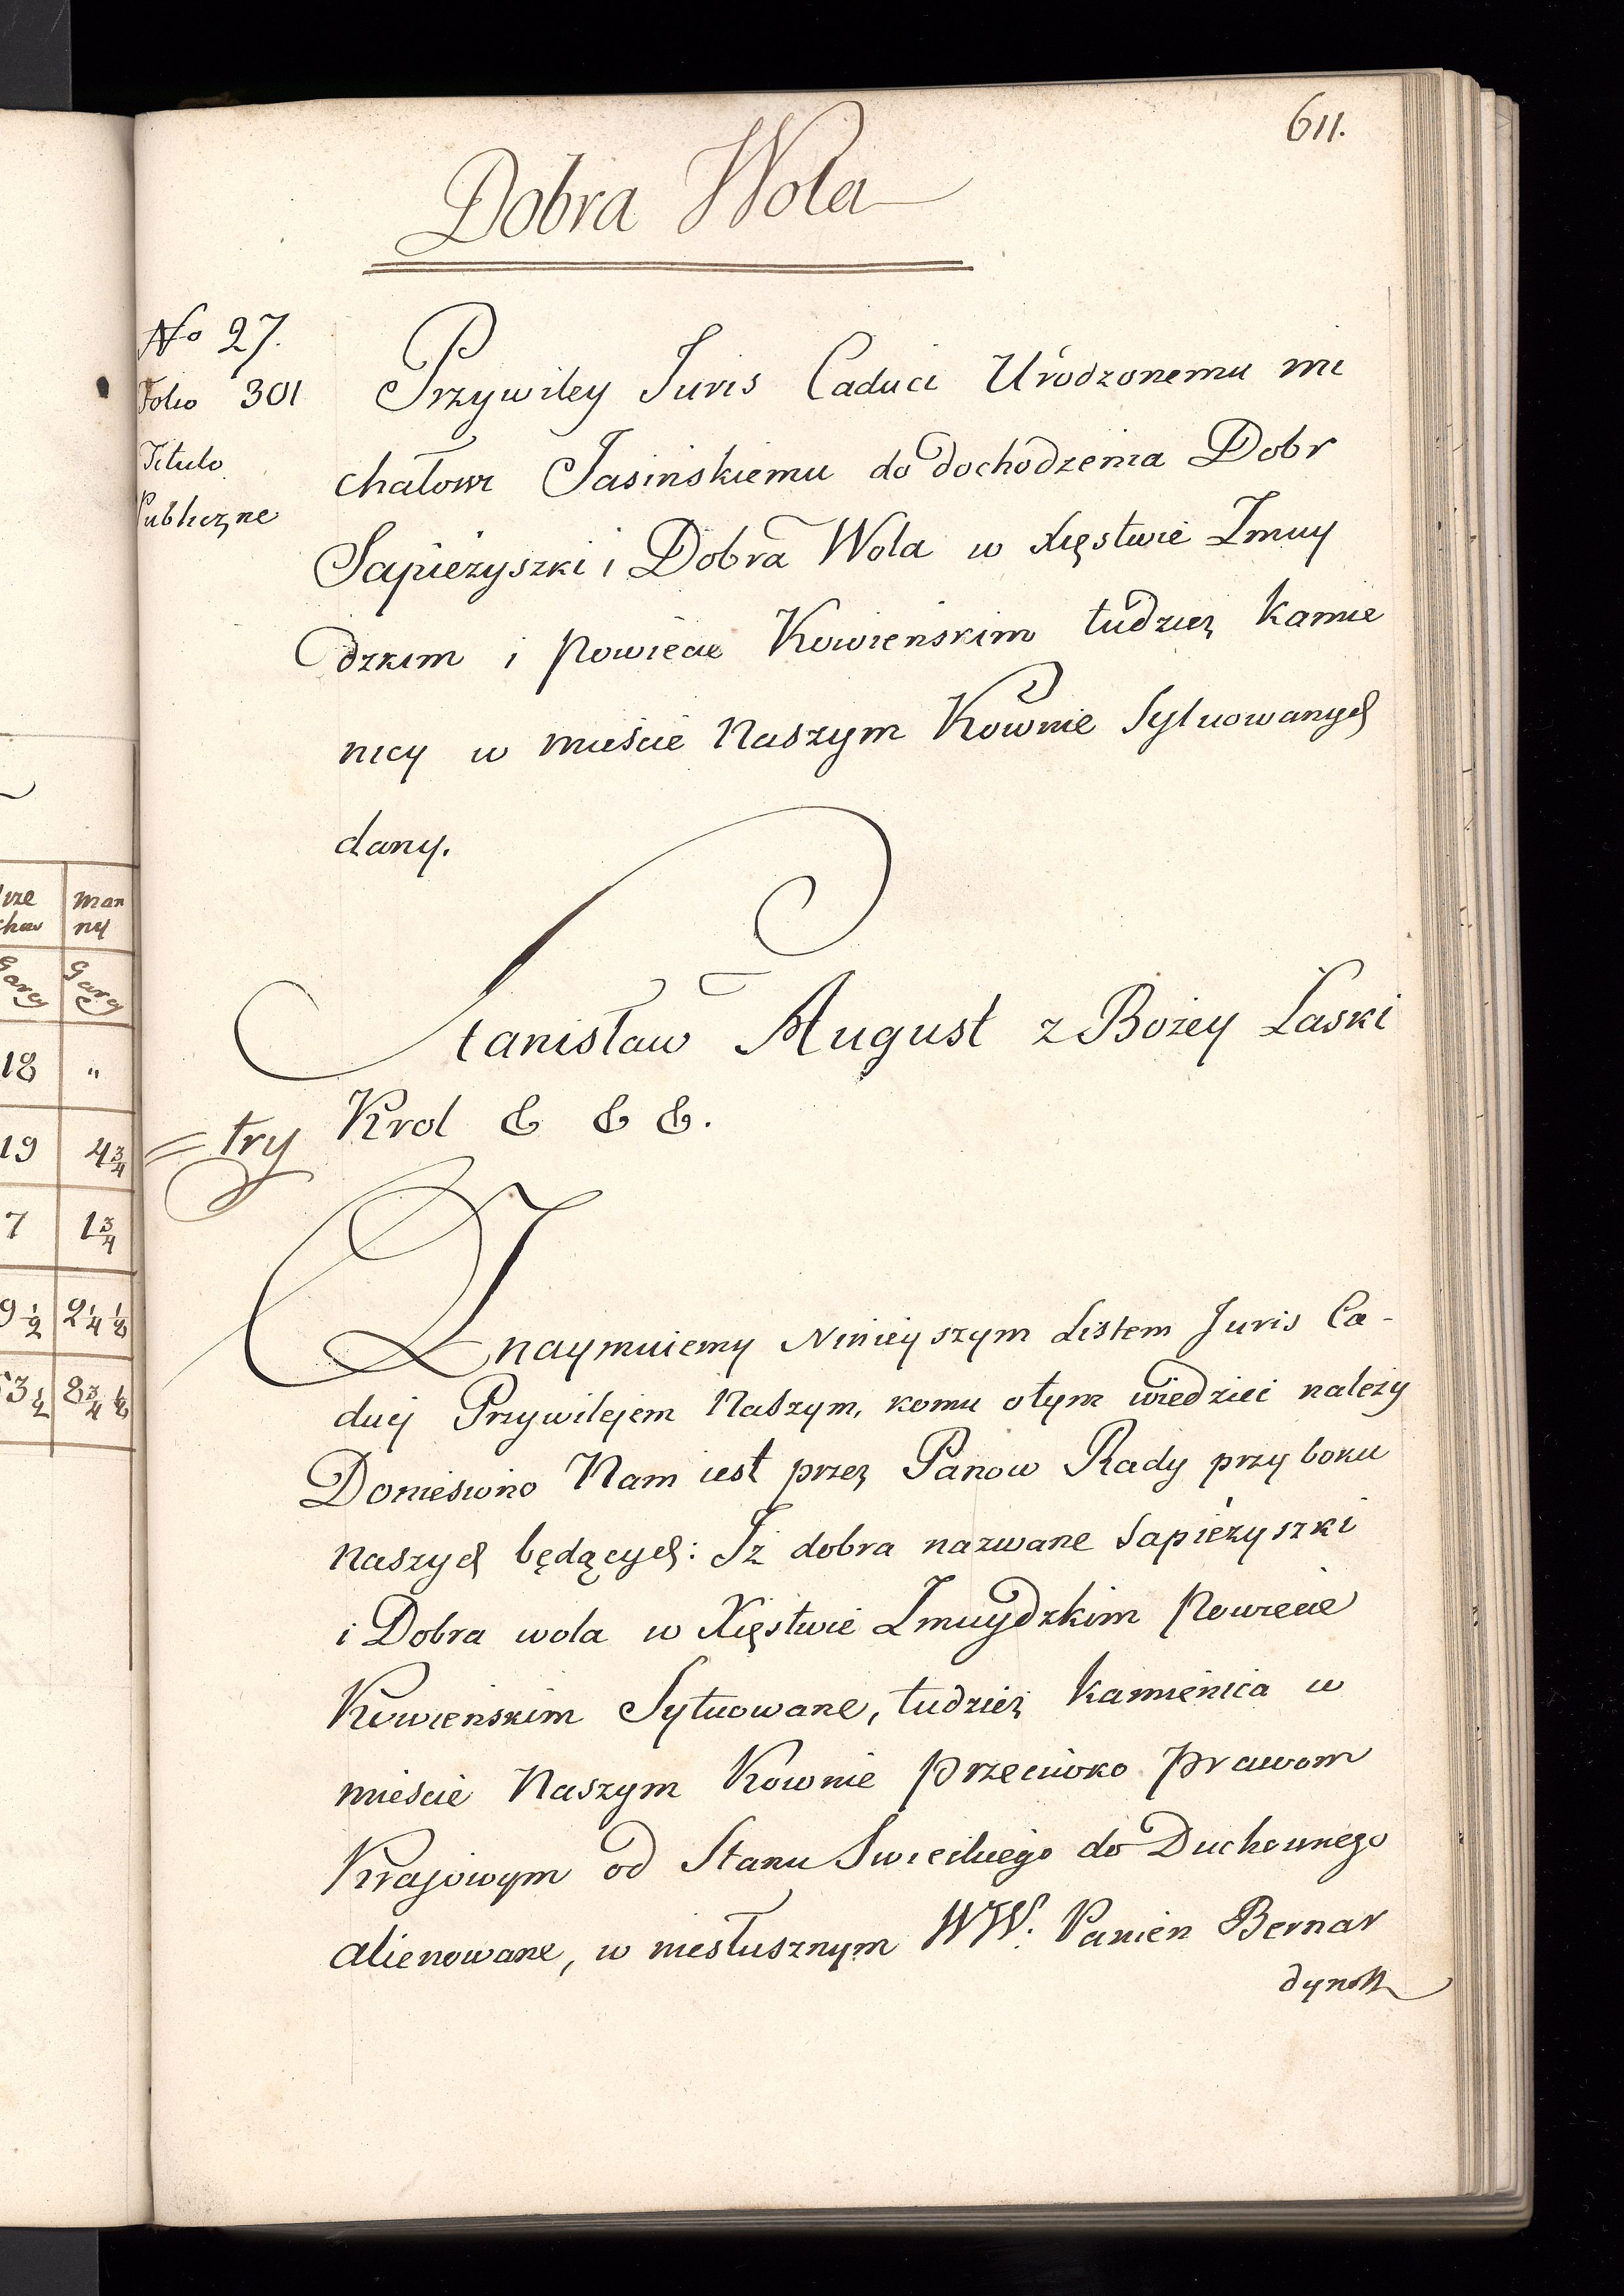 611.
Dobra Wola
No 27.
Folio 301
Titulo
Publiczne
Przywiley Juris Caduci Urodzonemu mi
chałowi Jasinskiemu do dochodzenia Dobr
Sapieżyszki i Dobra Wola w Xięstwie Zmuy
dzkim i Powiecie Kowienskim tudzież kamie
nicy w mieście Naszym Kownie Sytuowanych
dany.
Stanisław August z Bożey Łaski
Krol & & &.
= try
Znaymuiemy Ninieyszym Listem Juris Ca-
duci Przywilejem Naszym, komu otym wiedzieć należy
Doniesiono Nam iest przez Panow Rady przy boku
naszych będących: Iż dobra nazwane Sapieżyszki
i Dobra wola w Xięstwie Zmuydzkim Powiecie
Kowienskim Sytuowane, tudzież kamienica w
mieście Naszym Kownie przeciwko prawom
Krajowym od Stanu Swieckiego do Duchownego
alienowane, w niesłusznym WW. Panien Bernar
dynek
man
ny
Garcy
18 "
19 4 3/4
7 1 3/4
9 1/2 2 1/4 1/8
53 1/2 8 3/4 1/8